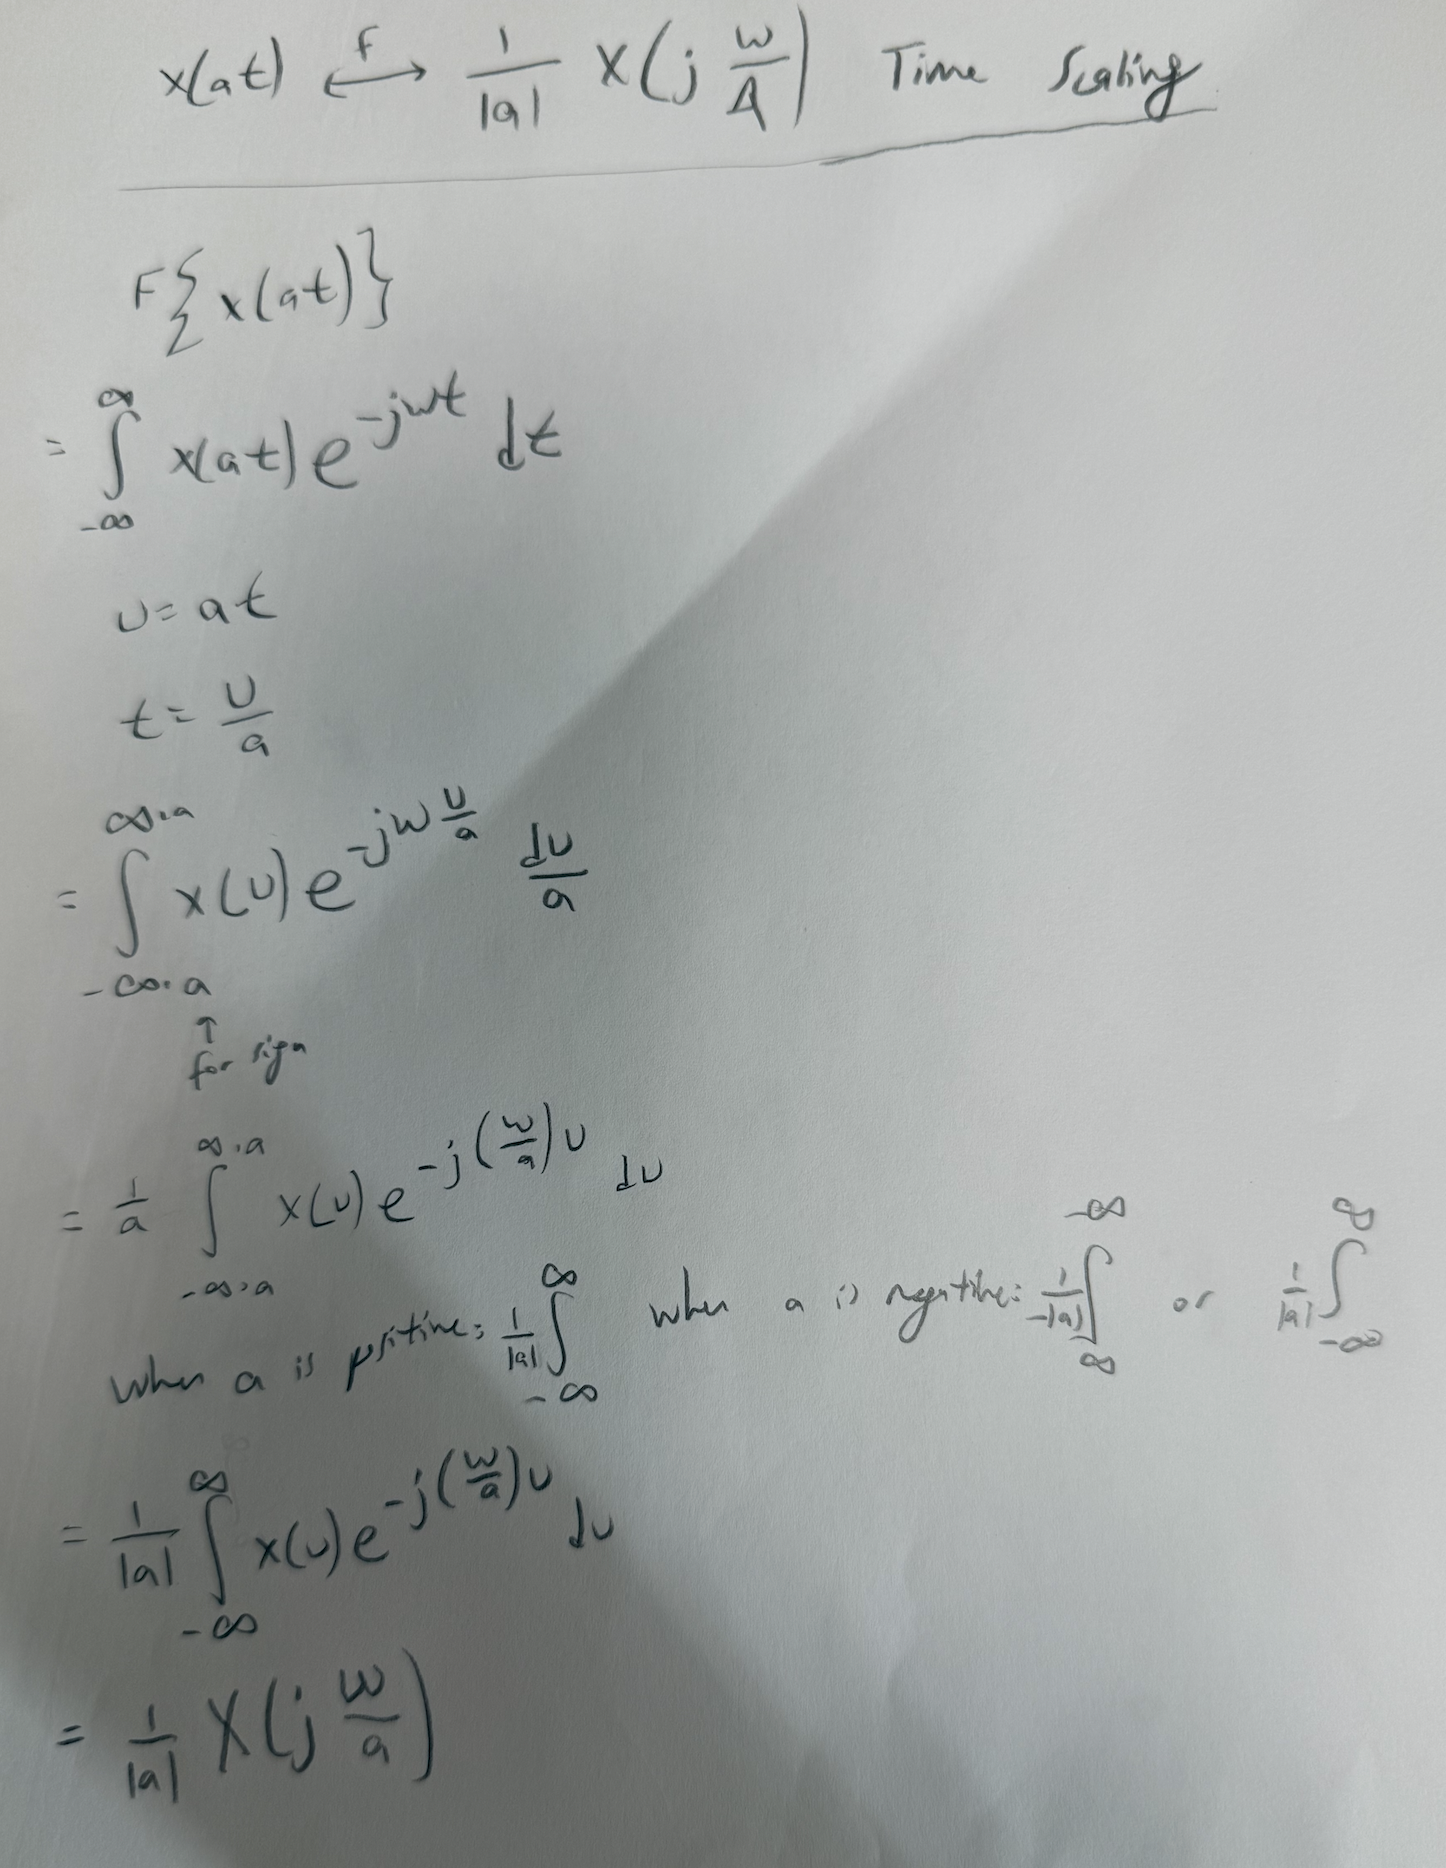 x(at) ⟷ᶠ 1/|a| X(j w/A) Time Scaling
F{x(at)}
= ∫_{-∞}^{∞} x(at) e^{-jwt} dt
u = at
t = u/a
= ∫_{-∞·a}^{∞·a} x(u) e^{-jw u/a} du/a
↑
for sign
= 1/a ∫_{-∞·a}^{∞·a} x(u) e^{-j(w/a)u} du
when a is positive: 1/|a| ∫_{-∞}^{∞} when a is negative: 1/-|a| ∫_{∞}^{-∞} or 1/|a| ∫_{-∞}^{∞}
= 1/|a| ∫_{-∞}^{∞} x(u) e^{-j(w/a)u} du
= 1/|a| X(j w/a)